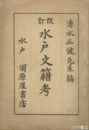 清水正健先生編
改訂 水戸文籍考
水戸 須原屋書店